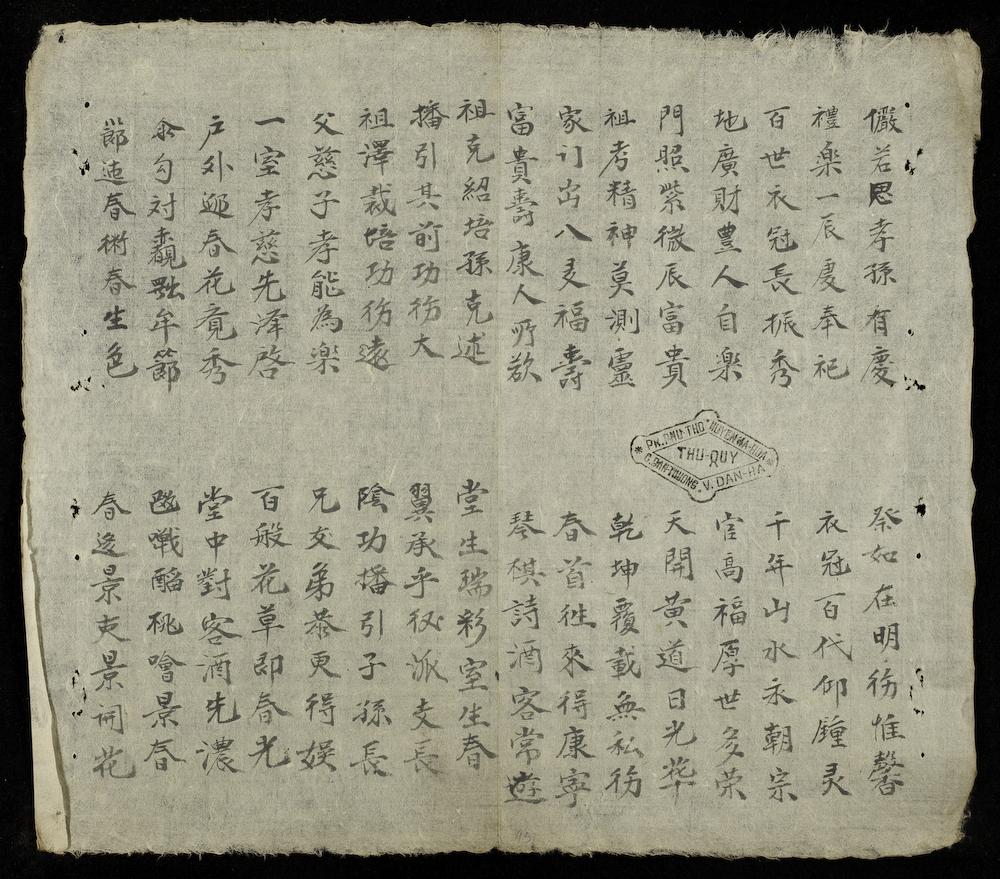 儼若思孝孫有慶
祭如在明德惟馨
禮樂一辰虔奉祀
衣冠百代仰鍾灵
百世衣冠長振秀
千年山水永朝宗
地廣財豊人自樂
官高福厚世多荣
門照紫微辰富貴
天開黄道日光華
祖考精神莫測靈
乾坤覆載無私德
家门出入灵福壽
春首徃來得康寧
富貴壽康人所欲
琴棋詩酒客常遊
祖克紹培孫克述
堂生瑞彩室生春
播引其前功德大
翼承乎後派支長
祖澤栽培功德遠
陰功播引子孫長
父慈子孝能為樂
兄友弟恭更得娱
一室孝慈先澤啓
百般花草即春光
户外迎春花竟秀
堂中對客酒先濃
勾対牟節
桃噲景春
節春術春生色
春景吏景開花
PK.PHU-THO HUYEN HA-HOA
THU-QUY
C.DAN-THUONG. V.DAN-HA